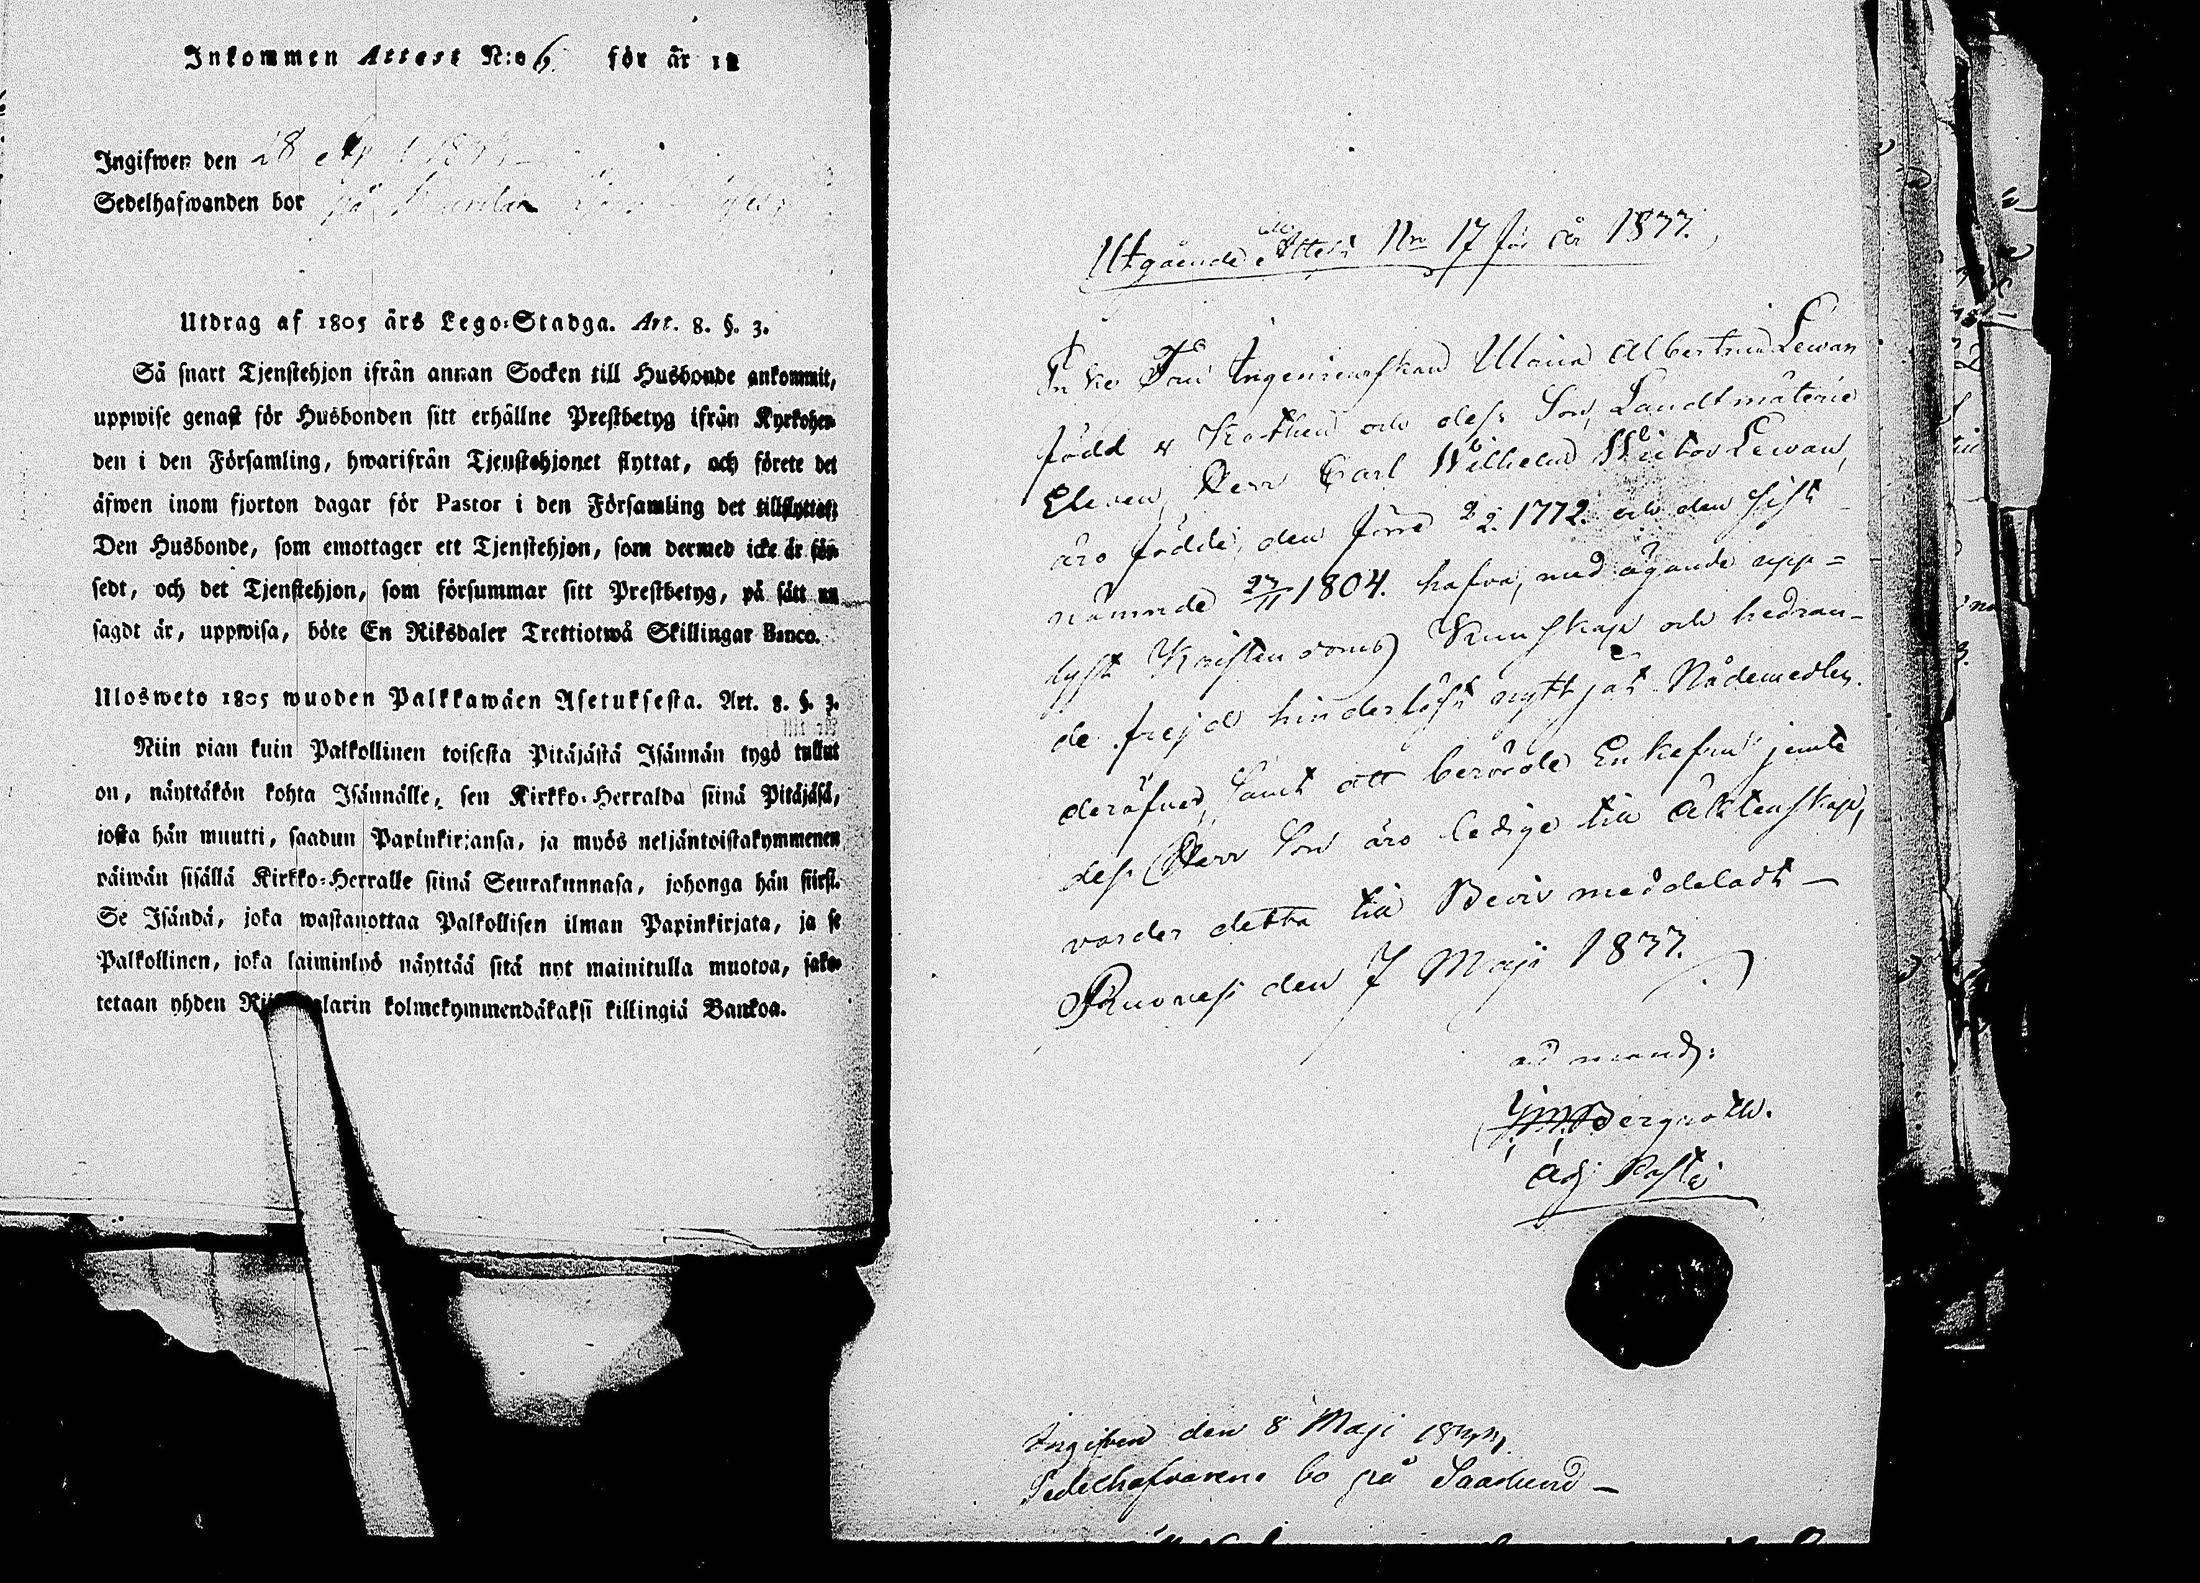 Inkommen Attest N:o 6 för år 18
Ingifwen den 28
Sedelhafwanden bor på
Utdrag af 1805 års Lego-Stadga. Art. 8. §. 3.
Så snart Tjenstehjon ifrån annan Socken till Husbonde ankommit,
uppwise genast för Husbonden sitt erhållne Prestbetyg ifrån Kyrkoher-
den i den Församling, hwarifrån Tjenstehjonet flyttat, och förete det
äfwen inom fjorton dagar för Pastor i den Församling det tillflyttat;
Den Husbonde, som emottager ett Tjenstehjon, som dermed icke är för-
sedt, och det Tjenstehjon, som försummar sitt Prestbetyg, på sätt nu
sagdt är, uppwisa, böte En Riksdaler Trettiotwå Skillingar Banco.
Ulosweto 1805 wuoden Palkkawäen Asetuksesta. Art. 8. §. 3.
Niin pian kuin Palkollinen toisesta Pitäjästä Isännän tygö tullut
on, näyttäkön kohta Isännälle, sen Kirkko-Herralda siinä Pitäjäsä,
josta hän muutti, saadun Papinkirjansa, ja myös neljäntoistakymmenen
päiwän sisällä Kirkko-Herralle siinä Seurakunnasa, johonga hän siirsi.
Se Isändä, joka wastanottaa Palkollisen ilman Papinkirjata, ja se
Palkollinen, joka laiminlyö näyttää sitä nyt mainitulla muotoa, sako-
tetaan yhden larin kolmekymmendäkaksi killingiä Bankoa.
Utgående Attest Nro 17 för år 1833.
Enke Fru Ingenieurskan Maria Albertina Lewan
född v Kothen och dess Son, Landtmäterie
Eleven, Herr Carl Wilhelm Victor Lewan,
äro födde, den förra 2/2. 1772. och den sist-
nämnde 27/11 1804. hafva, med ägande upp-
lyst Kristendoms Kunskap och hedran-
de frejd hinderlöst nyttjat Nådemedlen.
deräfver, samt att berörde Enkefru jemte
dess Herr Son äro ledige till Äktenskap,
varder detta till Bevis meddeladt —
Pruoness den 7 Maji 1833.
ad mand:
Bergroth.
Adj: Past:
Ingifven den 8 Maji 1833.
Sedelhafvarene bo på Saarlund —